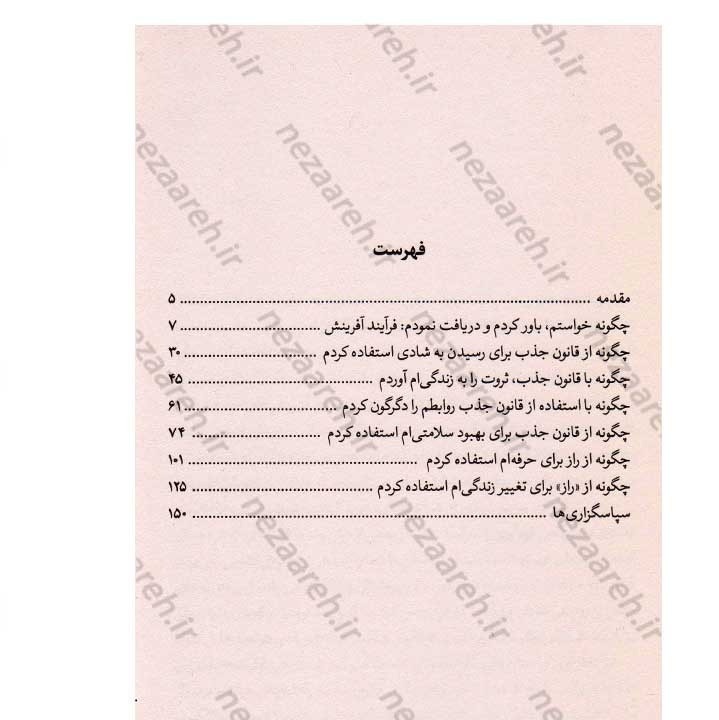 فهرست
مقدمه ........................................ ۵
چگونه خواستم، باور کردم و دریافت نمودم: فرآیند آفرینش ........................................ ۷
چگونه از قانون جذب برای رسیدن به شادی استفاده کردم ........................................ ۳۰
چگونه با قانون جذب، ثروت را به زندگی‌ام آوردم ........................................ ۴۵
چگونه با استفاده از قانون جذب روابطم را دگرگون کردم ........................................ ۶۱
چگونه از قانون جذب برای بهبود سلامتی‌ام استفاده کردم ........................................ ۷۴
چگونه از راز برای حرفه‌ام استفاده کردم ........................................ ۱۰۱
چگونه از «راز» برای تغییر زندگی‌ام استفاده کردم ........................................ ۱۲۵
سپاسگزاری‌ها ........................................ ۱۵۰
nezaareh.ir